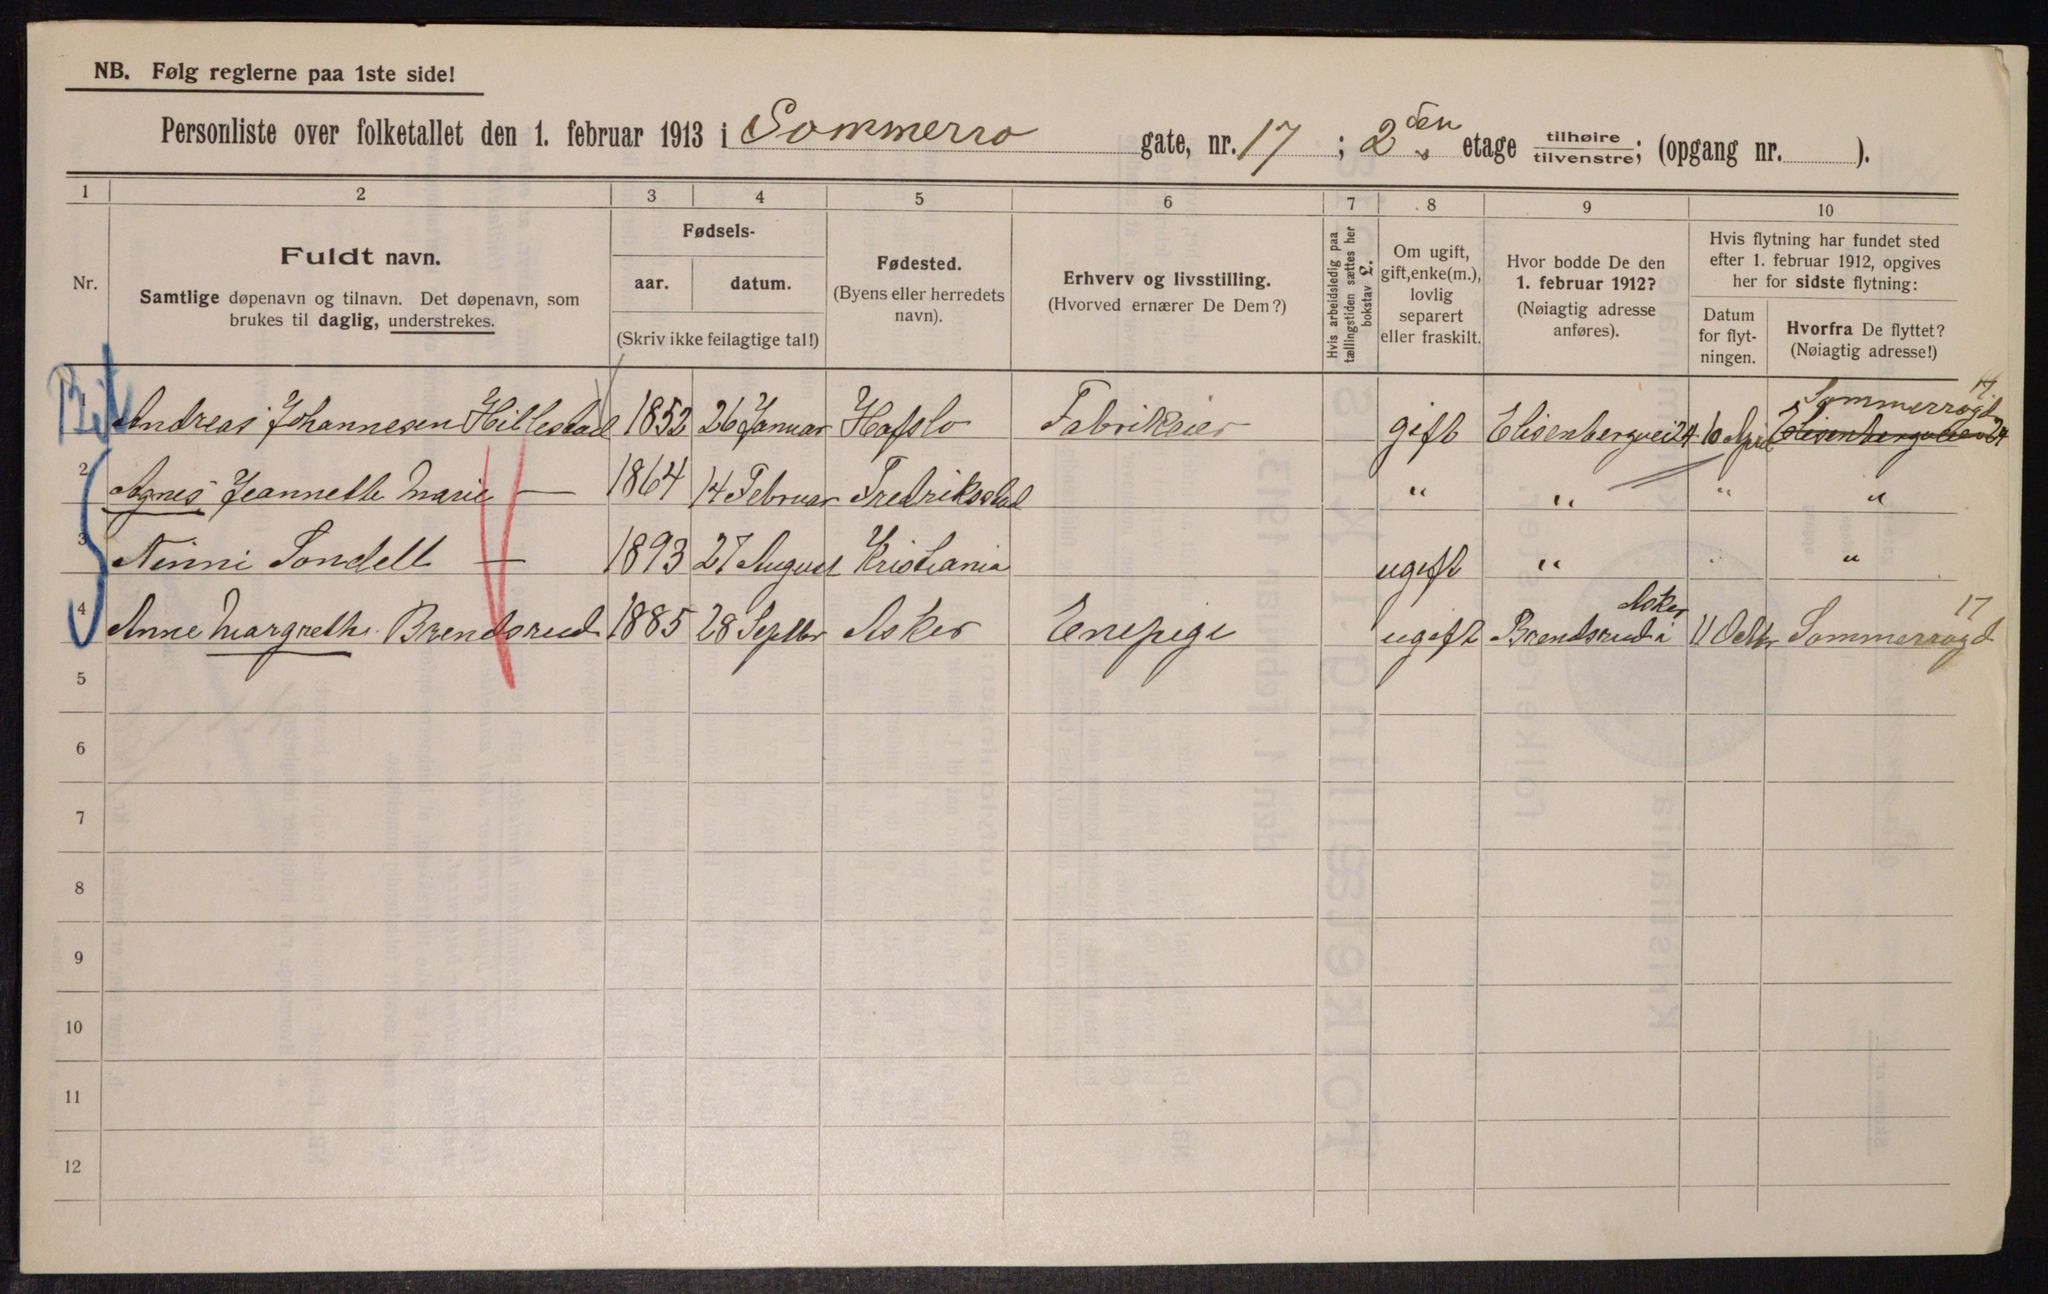 NB. Følg reglerne paa 1ste side!
Personliste over folketallet den 1. februar 1913 i Sommerro gate, nr. 17; 2den etage tilhøire/tilvenstre; (opgang nr. ).
1 2 3 4 5 6 7 8 9 10
Nr.
Fuldt navn.
Samtlige døpenavn og tilnavn. Det døpenavn, som
brukes til daglig, understrekes.
Fødsels-
aar. datum.
(Skriv ikke feilagtige tal!)
Fødested.
(Byens eller herredets
navn).
Erhverv og livsstilling.
(Hvorved ernærer De Dem?)
Hvis arbeidsledig paa
tællingstiden sættes her
bokstav L.
Om ugift,
gift, enke(m.),
lovlig
separert
eller fraskilt.
Hvor bodde De den
1. februar 1912?
(Nøiagtig adresse
anføres).
Hvis flytning har fundet sted
efter 1. februar 1912, opgives
her for sidste flytning:
Datum
for flyt-
ningen.
Hvorfra De flyttet?
(Nøiagtig adresse!)
1 Andreas Johannesen Hillestad 1852 26 Januar Hafslo Fabrikeier gift Elisenbergvei 24 10 April Elisenbergveien 24 Sommerrogd 17.
2 Agnes Jeannette Marie — 1864 14 Februar Fredriksstad " " " "
3 Ninni Sondell — 1893 27 August Kristiania ugift " " "
4 Anne Margrethe Brendsrud 1885 28 Septbr Asker Enepige ugift Brendsrud i Asker 11 Octbr Sommerrogd 17
5
6
7
8
9
10
11
12